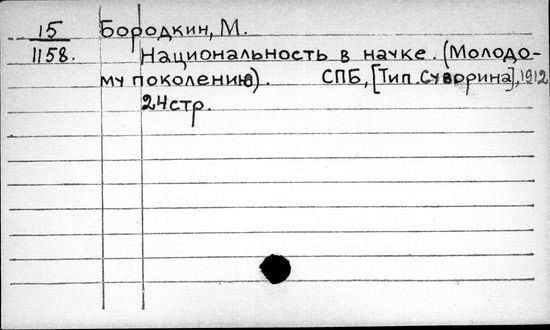 15 Бородкин, М.
1158. Национальность в науке. (Молодо-
му поколению). СПБ, [Тип. Суворина], 1912
24 стр.